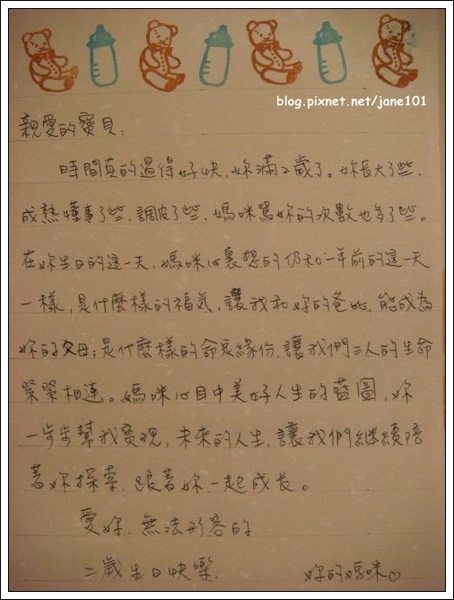 blog.pixnet.net/jane101
親愛的寶貝:
時間真的過得好快,妳滿2歲了。妳長大了些、
成熟懂事了些、調皮了些、媽咪罵妳的次數也多了些。
在妳生日的這一天,媽咪心裏想的仍和一年前的這一天
一樣,是什麼樣的福氣,讓我和妳的爸比,能成為
妳的父母;是什麼樣的命定緣份,讓我們三人的生命
緊緊相連。媽咪心目中美好人生的藍圖,妳
一步步幫我實現,未來的人生,讓我們繼續陪
著妳探索、跟著妳一起成長。
愛妳、無法形容的
二歲生日快樂.
妳的媽咪♡